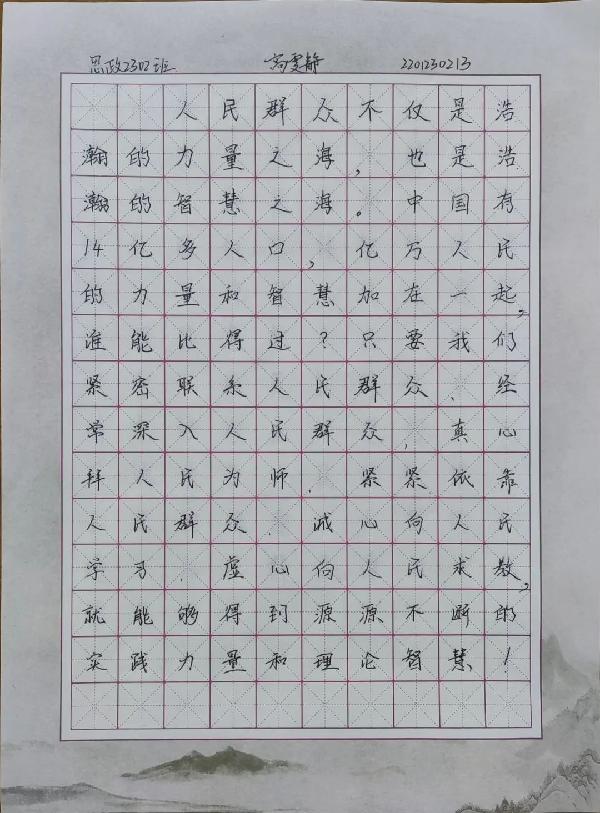 思政2302班 高雯静 2201230213
人民群众不仅是浩
瀚的力量之海，也是浩
瀚的智慧之海。中国有
14亿多人口，亿万人民
的力量和智慧加在一起，
谁能比得过？只要我们
紧密联系人民群众、经
常深入人民群众，真心
拜人民为师、紧紧依靠
人民群众 诚心向人民
学习 虚心向人民求教，
就能够得到源源不断的
实践力量和理论智慧！